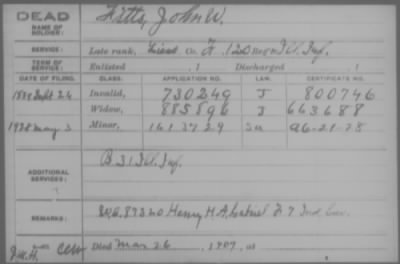 DEAD
NAME OF SOLDIER:
Fitts, John W.
SERVICE: Late rank, Co. F. 120 Ind. Inf.
TERM OF SERVICE: Enlisted , 1 Discharged , 1
DATE OF FILING. CLASS. APPLICATION NO. LAW. CERTIFICATE NO.
1889 Sept 26 Invalid, 730249 J 800746
Widow, 885896 J 663688
1928 May 3 Minor, 1613729 96-21-78
ADDITIONAL SERVICES: B 31 Inf.
REMARKS: 87320 Henry H. A. Gabriel F 7 Ind. Cav.
Died Mar 26, 1907, at